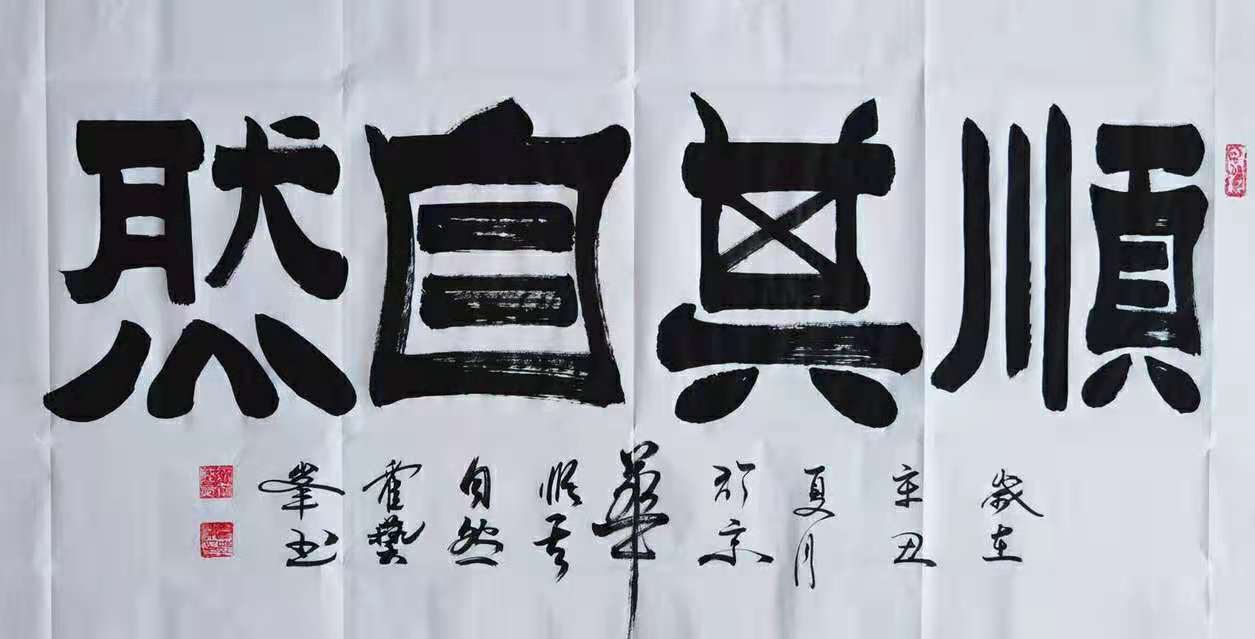 順其自然
歲在
辛丑
夏月
於京
華
順其
自然
霍藝
峯书